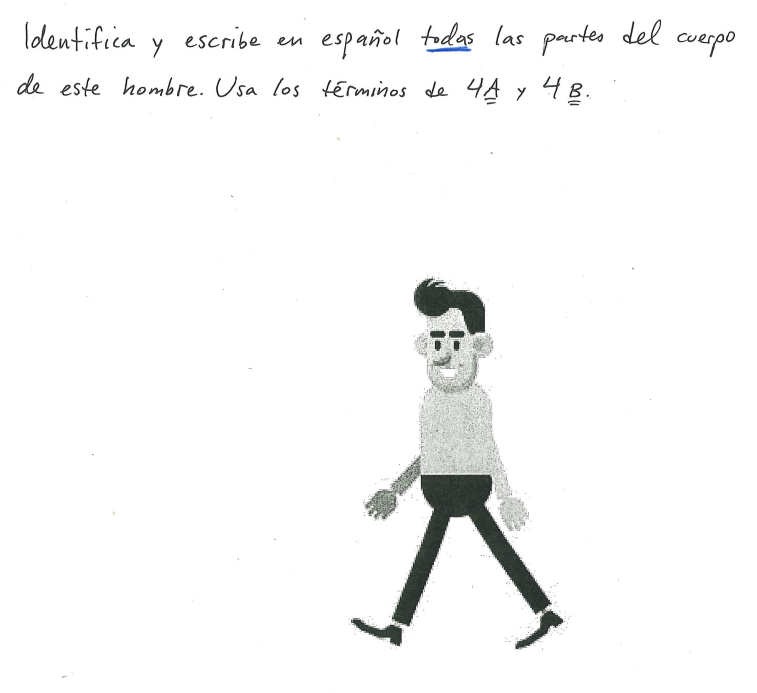 Identifica y escribe en español todas las partes del cuerpo
de este hombre. Usa los términos de 4A y 4B.